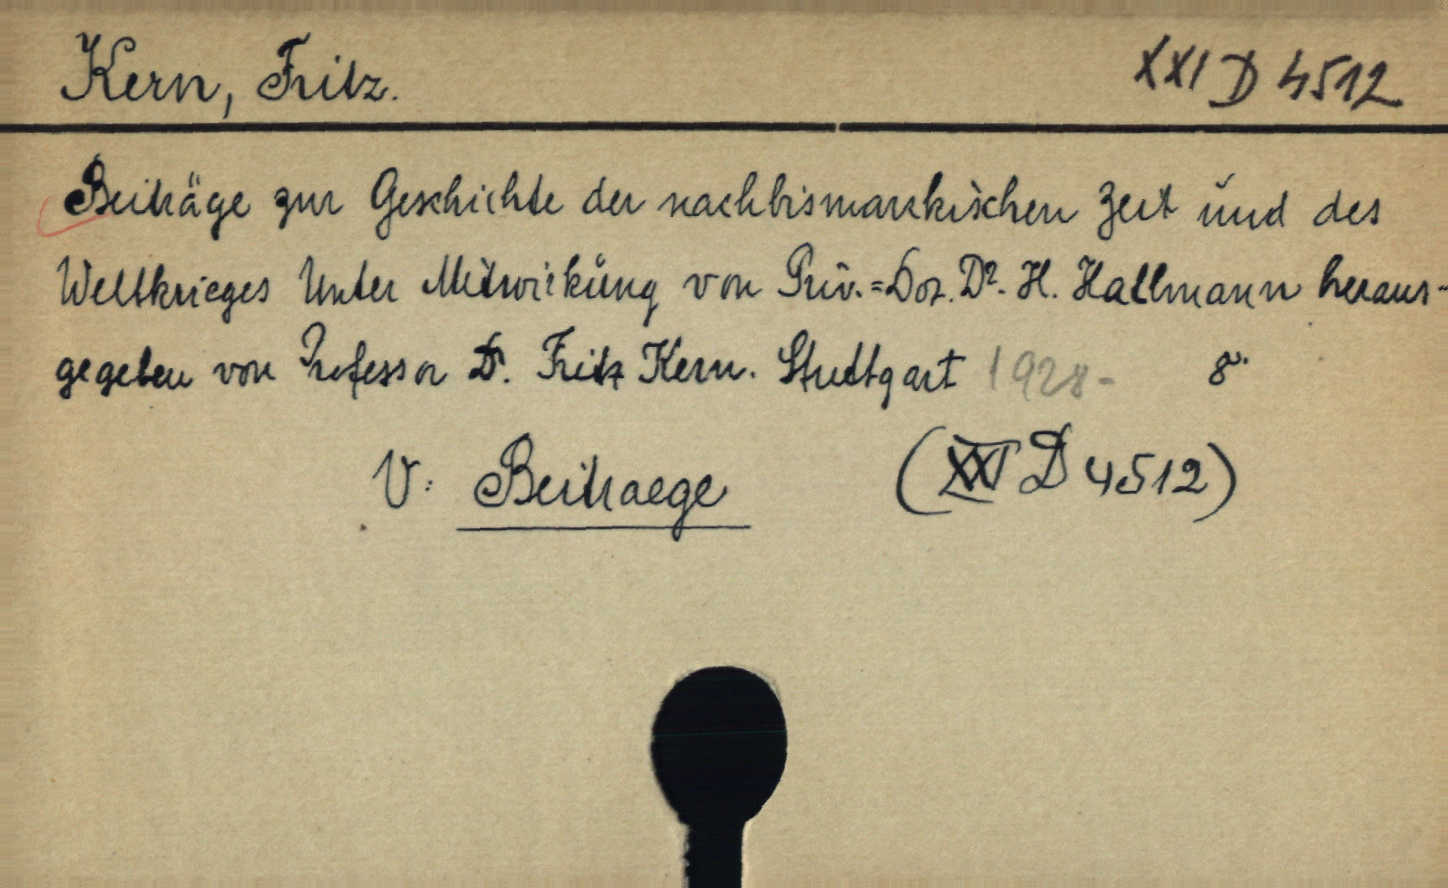 Kern, Fritz.
XXI D 4512
Beiträge zur Geschichte der nachbismarkischen Zeit und des
Weltkrieges Unter Mitwirkung von Priv.=Doz. Dr. H. Hallmann heraus-
gegeben von Professor Dr. Fritz Kern. Stuttgart 1928- 8°.
V: Beitraege (XXI D 4512)